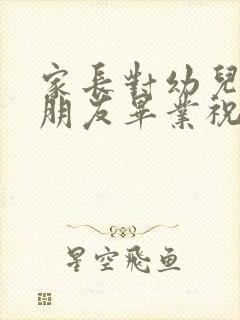 家長對幼兒
朋友畢業祝
星空飛鱼